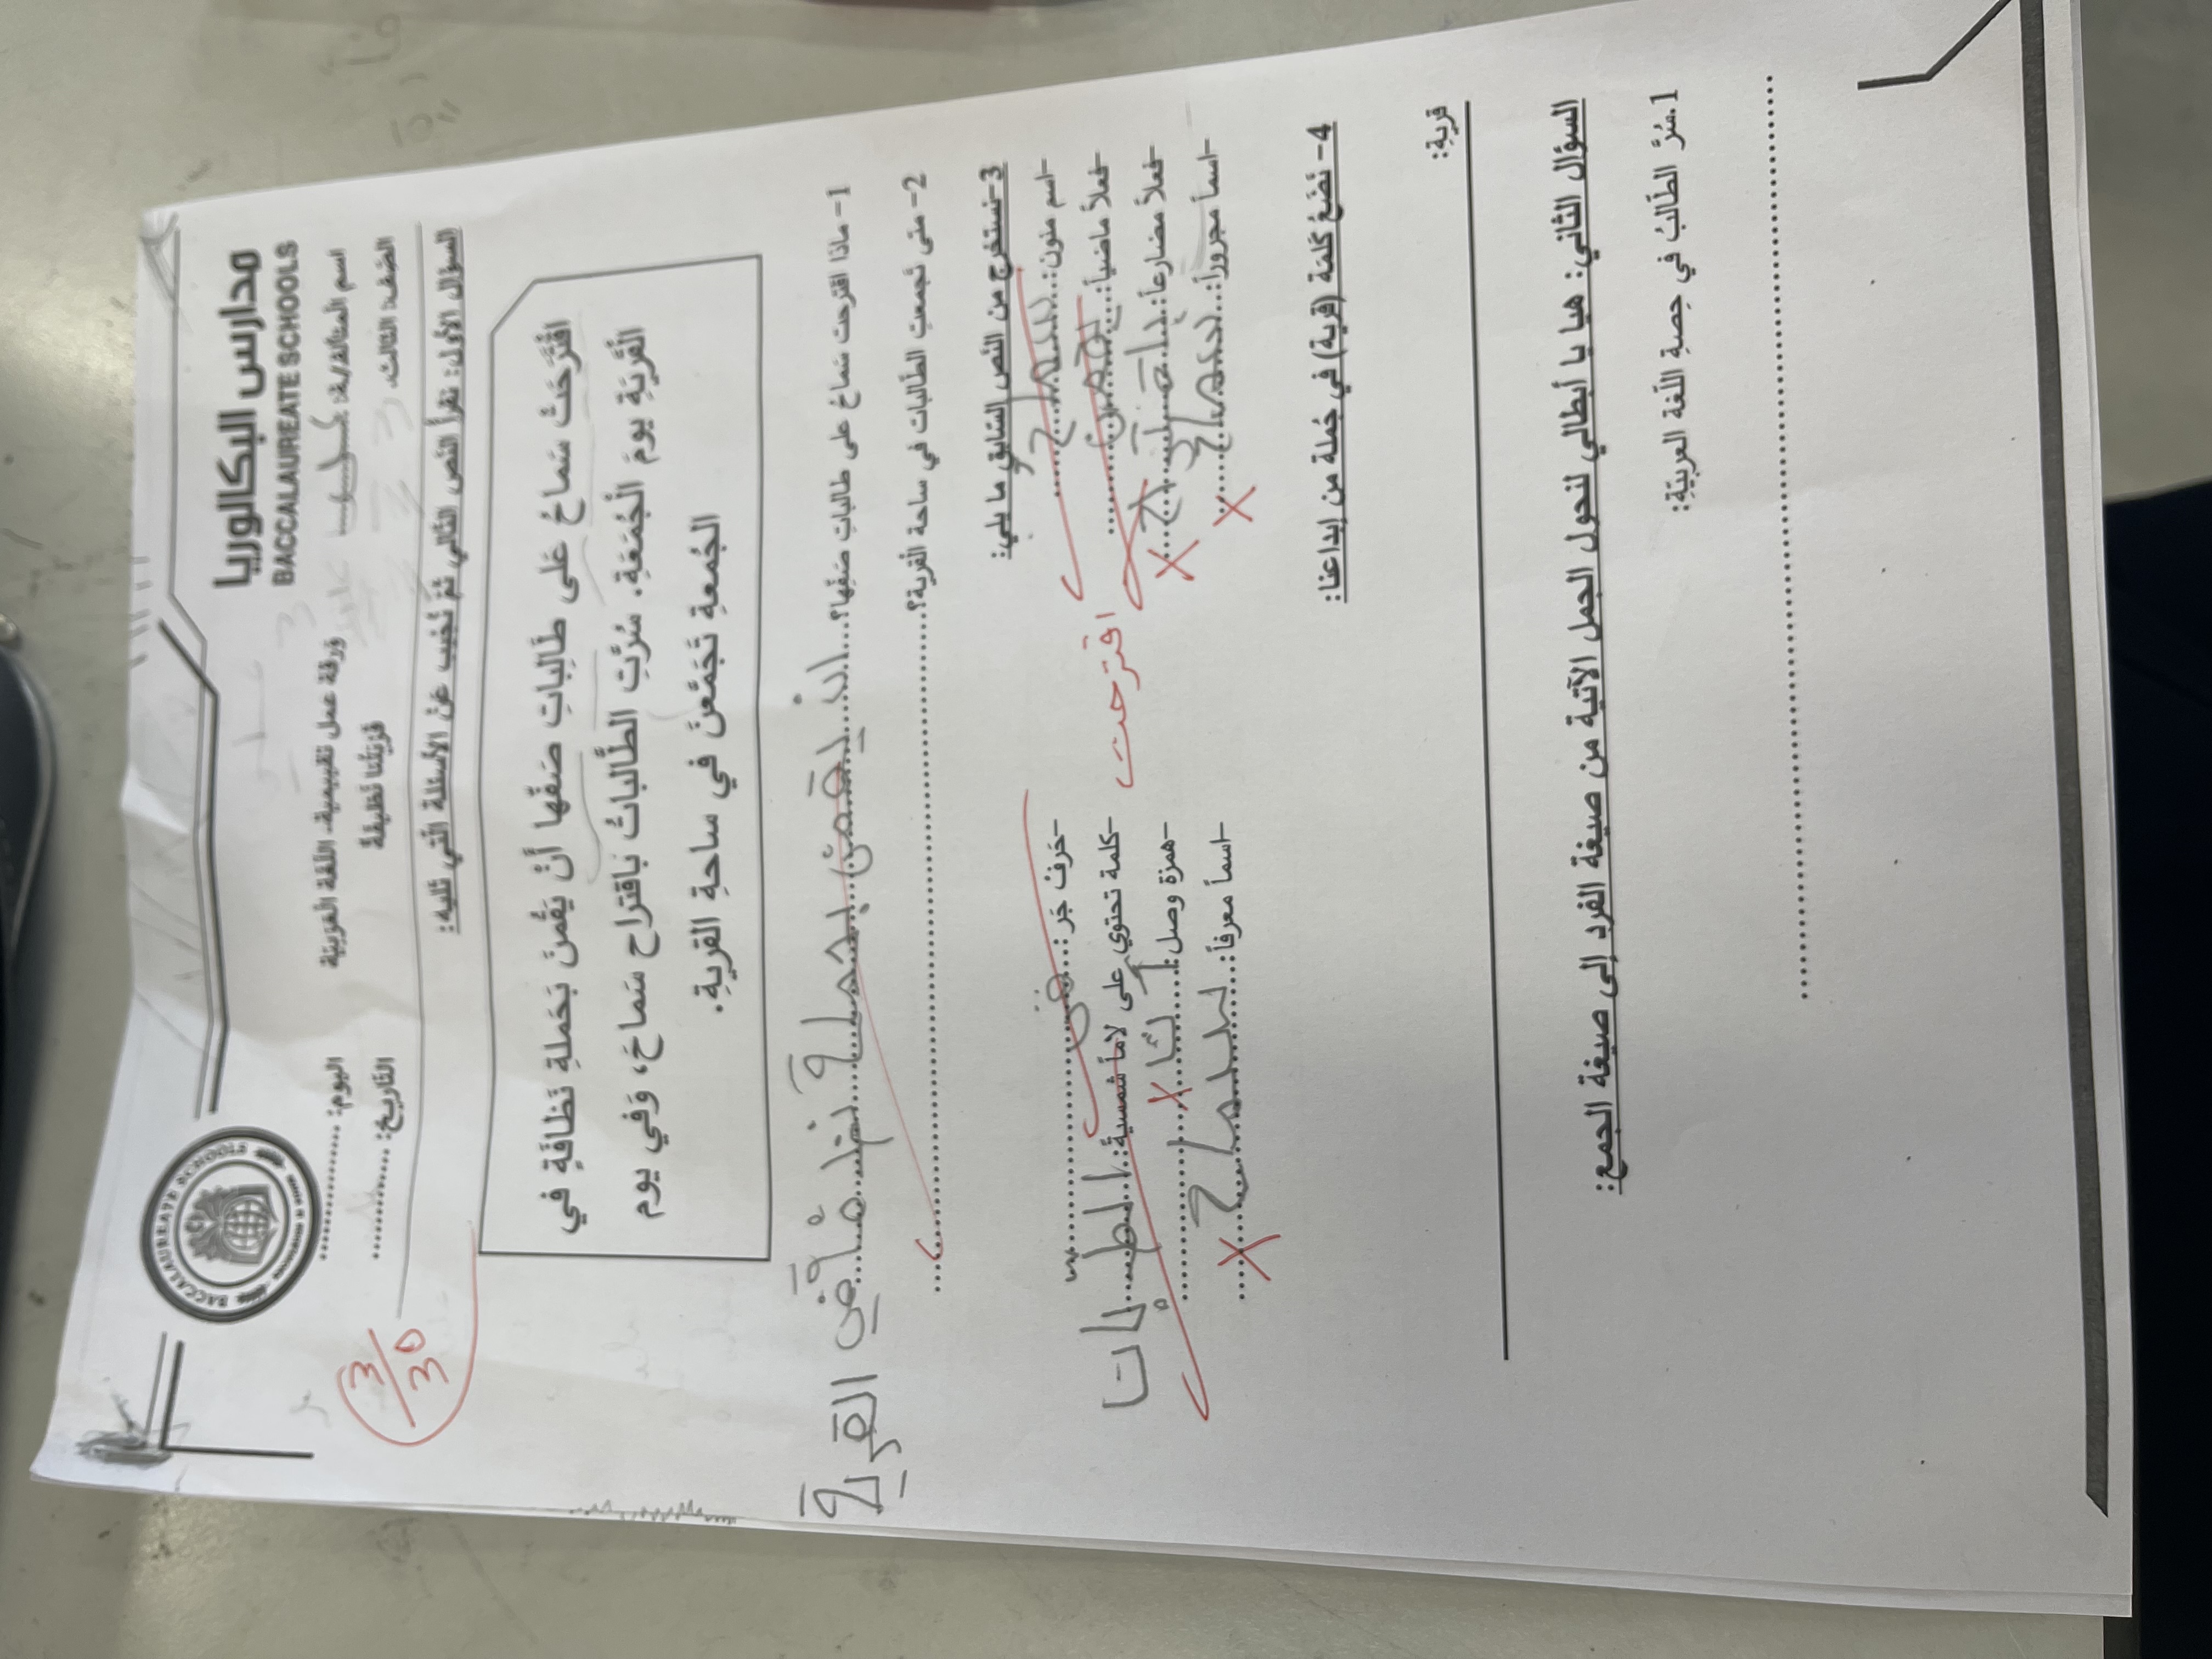 مدارس البكالوريا
BACCALAUREATE SCHOOLS
BACCALAUREATE SCHOOLS
3/30
اسم الطالب/ة:
ورقة عمل تقييمية- اللغة العربية
اليوم: ................
الصّف: الثالث.
قريتنا نظيفة
التاريخ: ................
السؤال الأول: نقرأ النص التالي ثمّ نُجيب عن الأسئلة التي تليه:
اقْتَرَحَتْ سَماحُ عَلى طَالِباتِ صَفِّها أَنْ يَقُمْنَ بَحَملةِ نَظافَةٍ في
الْقَرْيَةِ يومَ الْجُمَعَةِ. سُرَّتِ الطَّالباتُ بَاقتراح سَماحَ، وَفي يوم
الجُمعةِ تَجَمَّعنَ في ساحةِ القريةِ.
1- ماذا اقترحت سَماحُ على طالباتِ صَفِّها؟....ان يقمن بحملة نظافة في القرية
2- متى تَجمعتِ الطّالبات في ساحة القرية؟..................
3-نستخرج من النّص السّابق ما يلي:
-اسم منون:....سماح
-حَرفُ جَر:....في
-فعلاً ماضياً:....يقمن
اقترحت
-كلمة تحتوي على لاماً شمسيةً:....الطلبات
-فعلاً مضارعاً:
-همزة وصل:
-اسماً مجروراً:....سماح
-اسماً معرفاً:....سماح
4- نَضَعُ كلمَة (قرية) في جُملة من إبداعنا:
قرية:
السؤال الثّاني: هيا يا أبطالي لنحول الجمل الآتية من صيغة الفرد إلى صيغة الجمع:
1.سُرَّ الطّالبُ في حِصةِ اللّغة العربيّةِ: